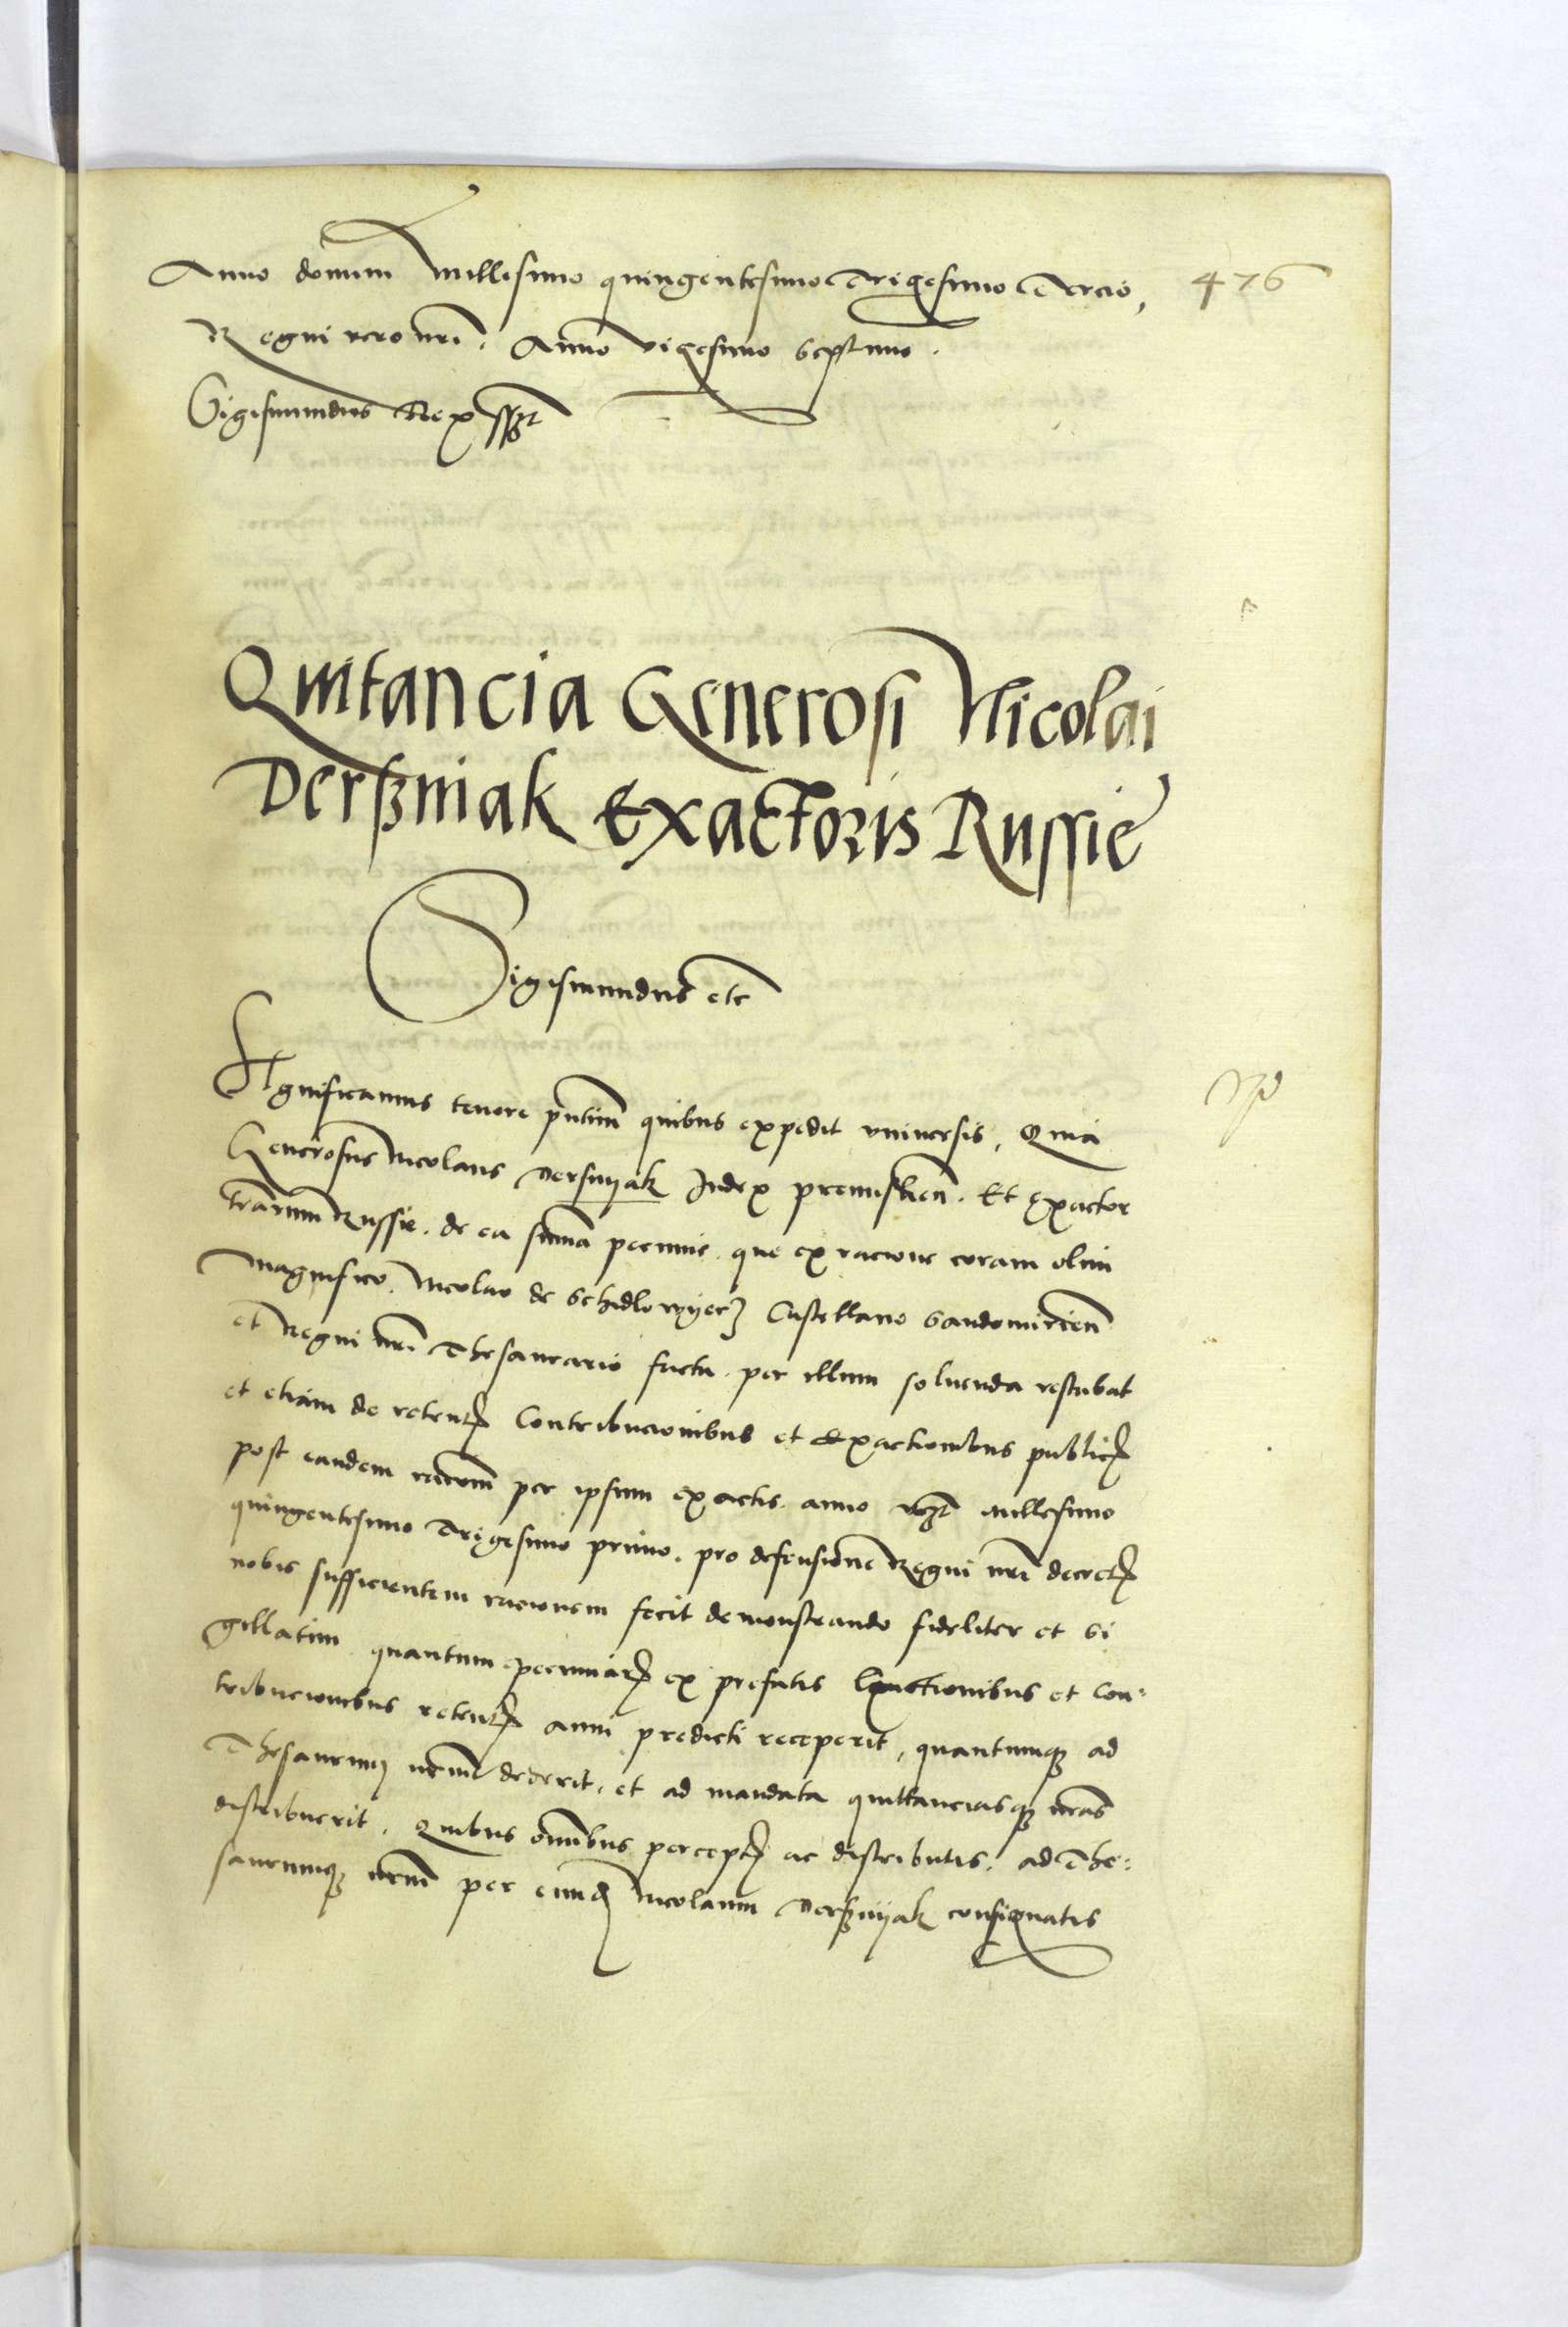 Anno domini Millesimo quingentesimo Trigesimo Tercio, 476
Regni vero nri. Anno vigesimo septimo.
Sigismundus Rex sszt
Quitancia Generosi Nicolai
Derszniak Exactoris Russie
Sigismundus etc
Significamus tenore pntium quibus expedit vniuersis, Quia
Generosus Nicolaus Dersnyak Iudex premislien. Et Exactor
trarum Russie. de ea suma pecunie. que ex racione coram olim
Magnifico. Nicolao de Schidlowyecz Castellano Sandomirien
et Regni nri Thesaurario facta. per illum soluenda restabat
et etiam de retent Contribucionibus et Exactionibus public
post eandem racionem per ipsum exactis. anno vczt Millesimo
quingentesimo Trigesimo primo. pro defensione Regni nri decret
nobis sufficientem racionem fecit demonstrando fideliter et Si
gillatim quantum pecuniar ex prefatis Exactionibus et Con-
tribucionibus retent anni predicti receperit, quantumqz ad
Thesaurum nrum dederit. et ad mandata quittanciasqz nras
distribuerit. Quibus omnibus percept ac distributis. ad The-
saurumqz nrum per eund Nicolaum Dersznyak consignatis